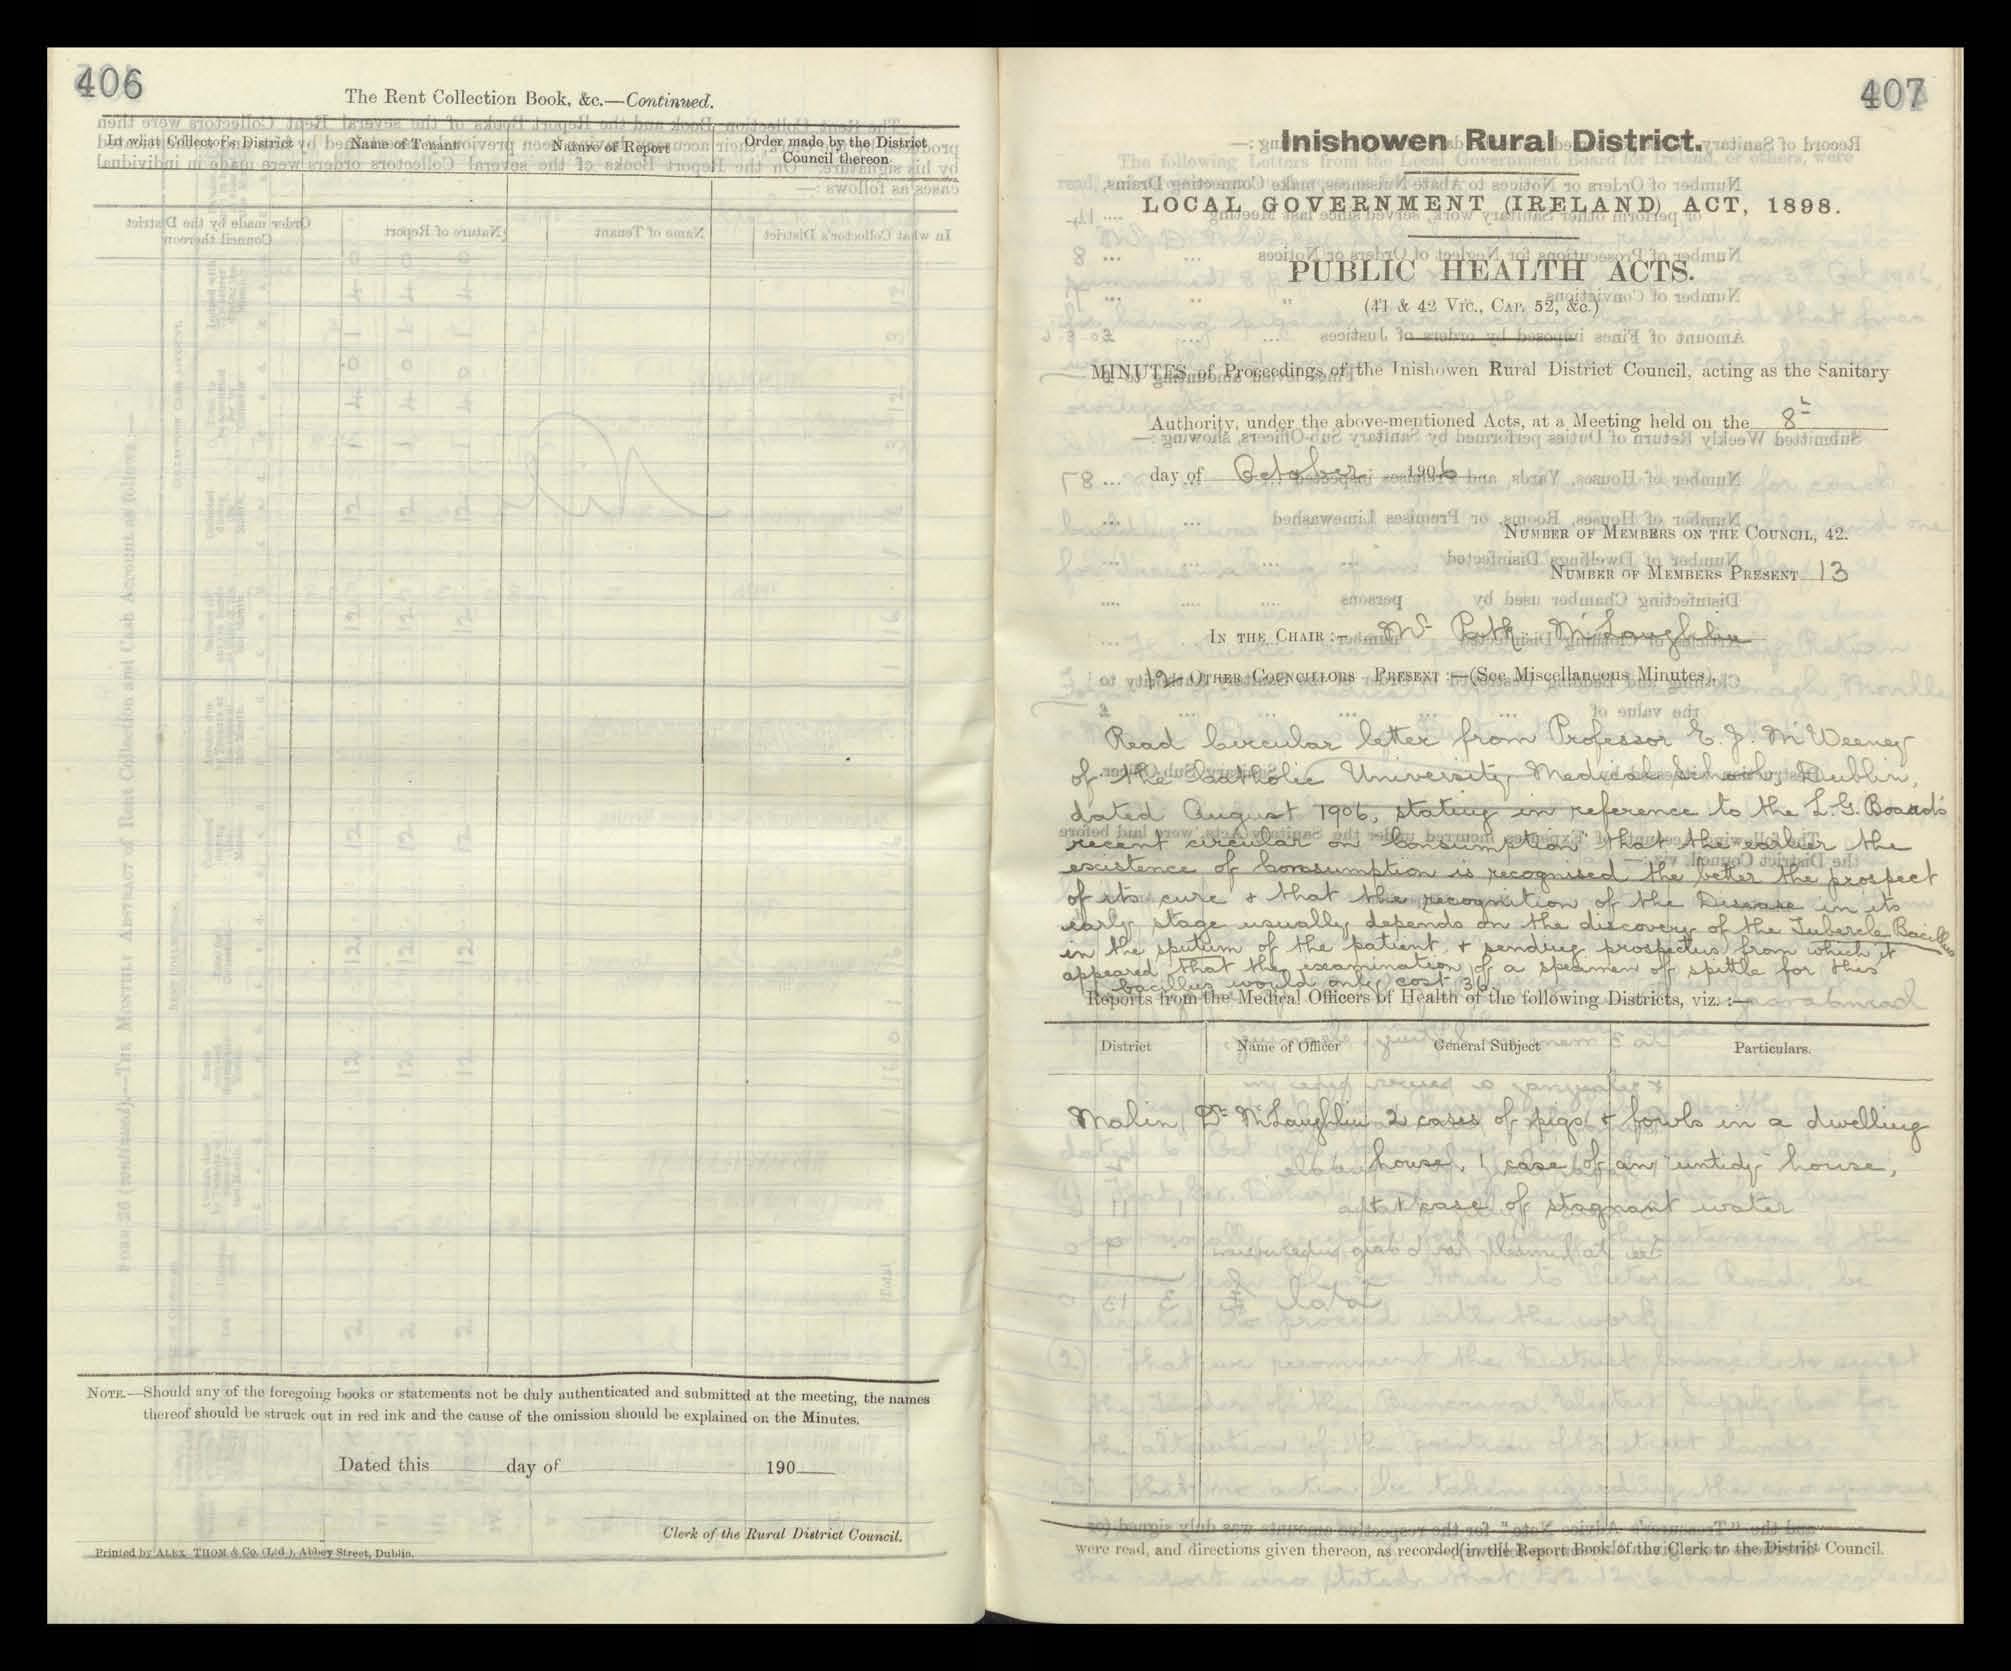 406
The Rent Collection Book, &c.—Continued.
In what Collector's District
Name of Tenant
Nature of Report
Order made by the District
Council thereon
Nil
NOTE.—Should any of the foregoing books or statements not be duly authenticated and submitted at the meeting, the names
thereof should be struck out in red ink and the cause of the omission should be explained on the Minutes.
Dated this day of 190
Clerk of the Rural District Council.
Printed by ALEX. THOM & Co. (Ltd.), Abbey Street, Dublin.
407
Inishowen Rural District.
LOCAL GOVERNMENT (IRELAND) ACT, 1898.
PUBLIC HEALTH ACTS.
(41 & 42 VIC., CAP. 52, &c.)
MINUTES of Proceedings of the Inishowen Rural District Council, acting as the Sanitary
Authority, under the above-mentioned Acts, at a Meeting held on the 8th
day of October 1906
NUMBER OF MEMBERS ON THE COUNCIL, 42.
NUMBER OF MEMBERS PRESENT 13
IN THE CHAIR :— Mr Patk. McLaughlin
12 OTHER COUNCILLORS PRESENT :—(See Miscellaneous Minutes).
Read Circular letter from Professor E. J. McWeeney
of the Catholic University Medical School, Dublin,
dated August 1906, stating in reference to the L. G. Board's
recent circular on Consumption that the earlier the
existence of Consumption is recognised the better the prospect
of its cure & that the recognition of the Disease in its
early stage usually depends on the discovery of the Tubercle Bacillus
in the sputum of the patient & sending prospectus from which it
appeared that the examination of a specimen of spittle for this
bacillus would only cost 3/-
Reports from the Medical Officers of Health of the following Districts, viz. :—
District
Name of Officer
General Subject
Particulars.
Malin Dr McLaughlin 2 cases of pigs & fowls in a dwelling
house, 1 case of an "untidy" house,
& 1 case of stagnant water
were read, and directions given thereon, as recorded in the Report Book of the Clerk to the District Council.